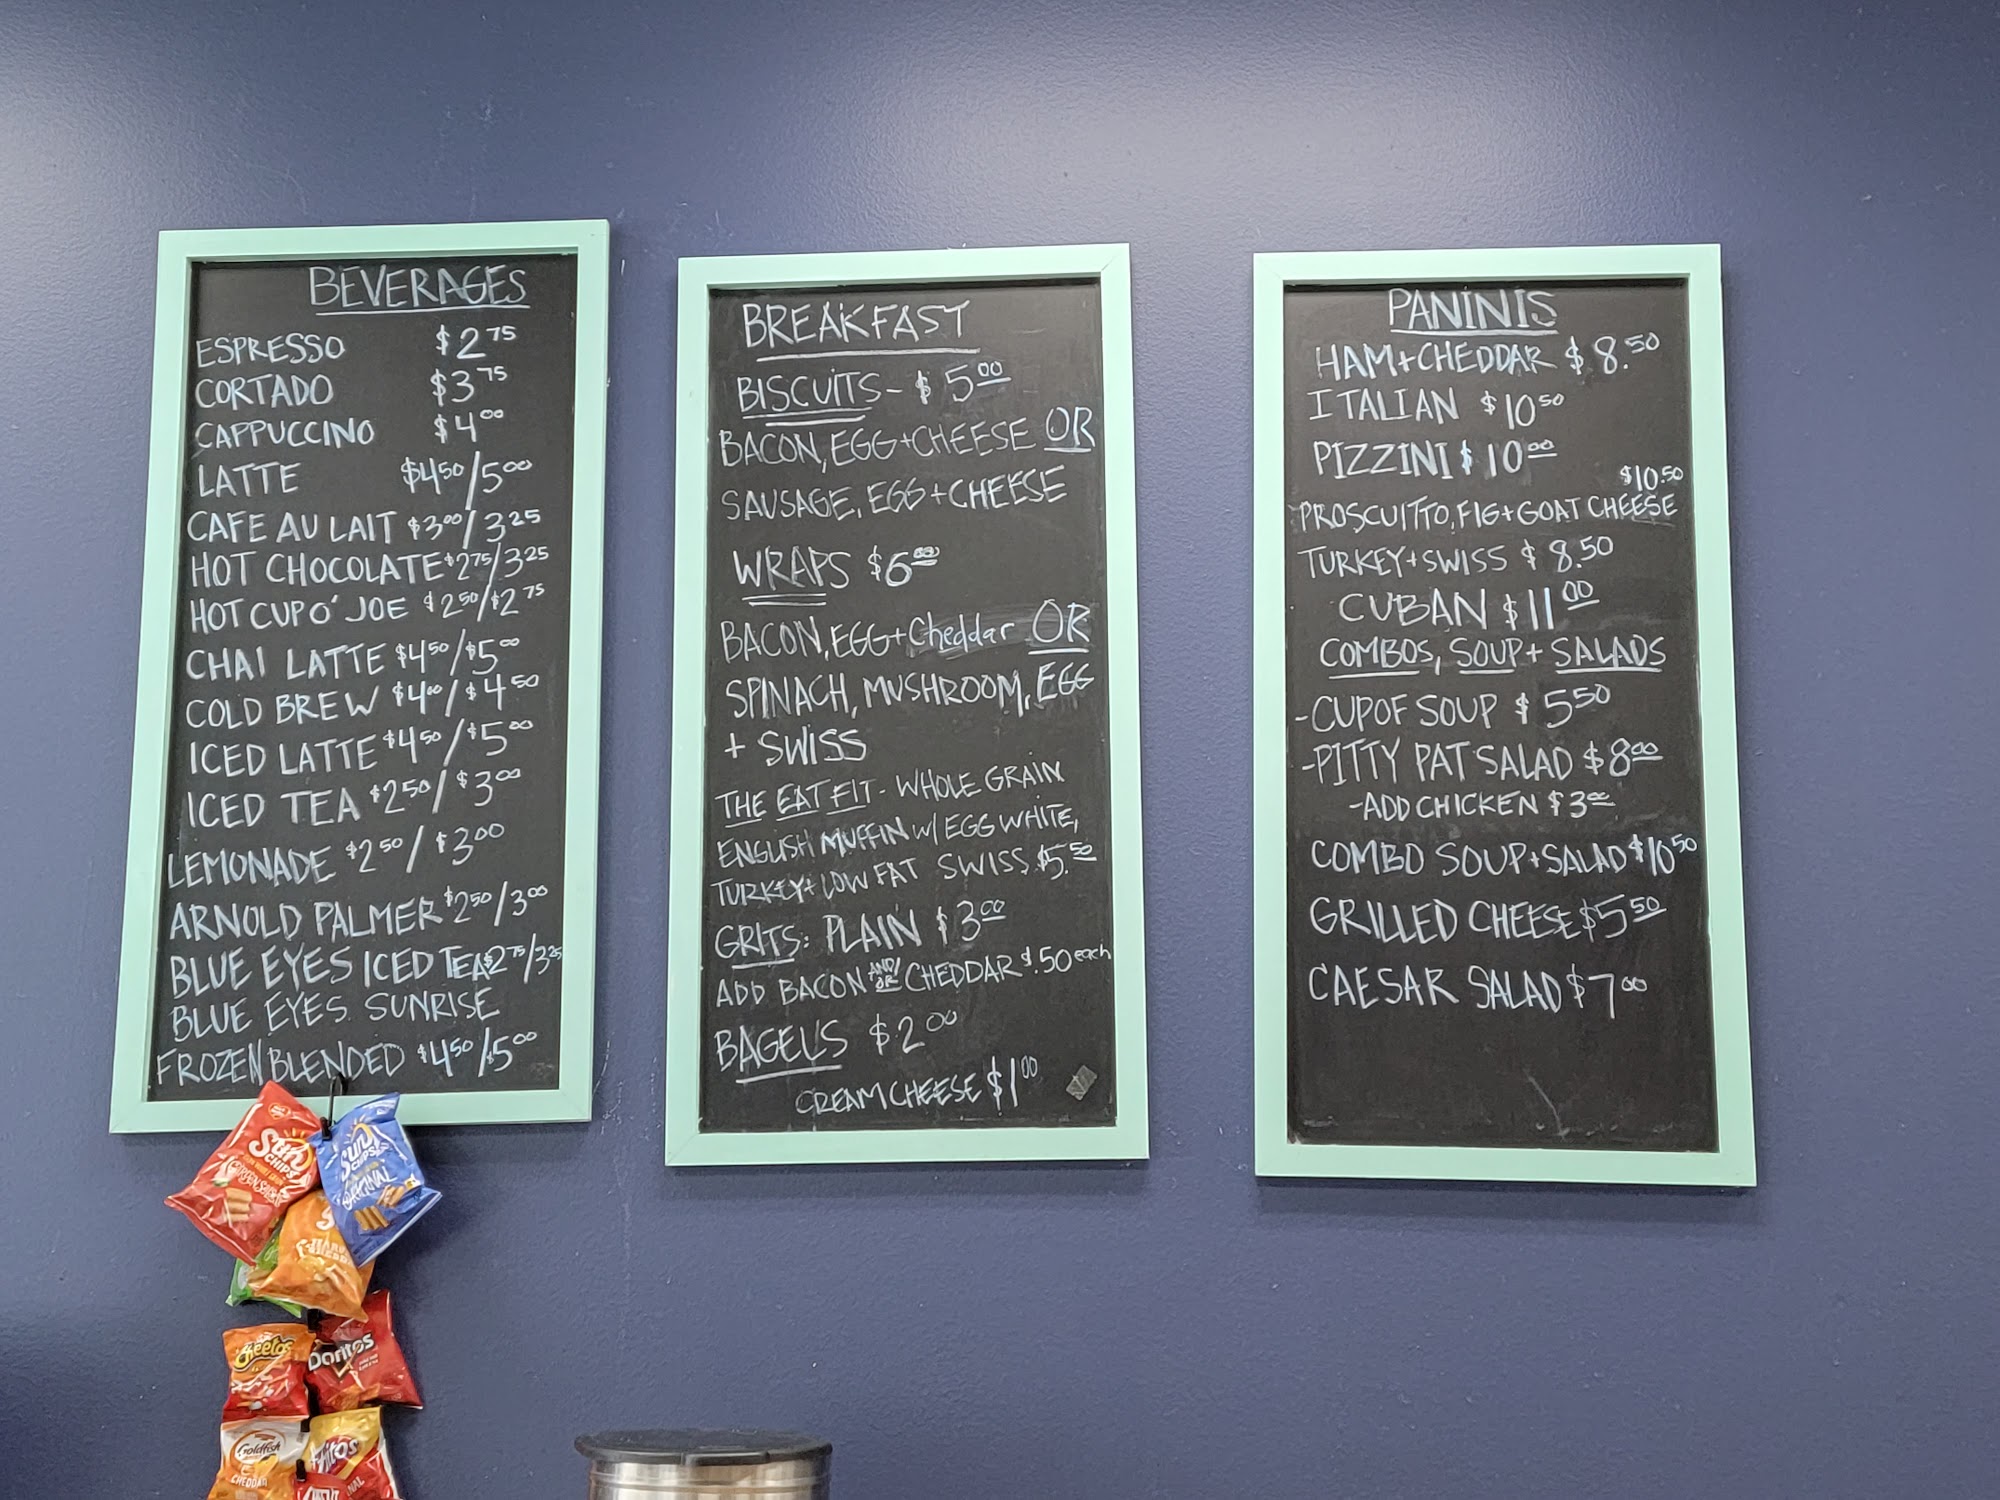 BEVERAGES
ESPRESSO $2.75
CORTADO $3.75
CAPPUCCINO $4.00
LATTE $4.50/5.00
CAFE AU LAIT $3.00/3.25
HOT CHOCOLATE $2.75/3.25
HOT CUP O' JOE $2.50/$2.75
CHAI LATTE $4.50/$5.00
COLD BREW $4.00/$4.50
ICED LATTE $4.50/$5.00
ICED TEA $2.50/$3.00
LEMONADE $2.50/$3.00
ARNOLD PALMER $2.50/3.00
BLUE EYES ICED TEA $2.75/3.25
BLUE EYES SUNRISE
FROZEN BLENDED $4.50/$5.00
BREAKFAST
BISCUITS- $5.00
BACON, EGG + CHEESE OR
SAUSAGE, EGG + CHEESE
WRAPS $6.00
BACON, EGG + Cheddar OR
SPINACH, MUSHROOM, EGG
+ SWISS
THE EAT FIT - WHOLE GRAIN
ENGLISH MUFFIN W/ EGG WHITE,
TURKEY + LOW FAT SWISS $5.50
GRITS: PLAIN $3.00
ADD BACON AND/OR CHEDDAR $.50 each
BAGELS $2.00
CREAM CHEESE $1.00
PANINIS
HAM + CHEDDAR $8.50
ITALIAN $10.50
PIZZINI $10.00
$10.50
PROSCUITTO, FIG + GOAT CHEESE
TURKEY + SWISS $8.50
CUBAN $11.00
COMBOS, SOUP + SALADS
-CUP OF SOUP $5.50
-PITTY PAT SALAD $8.00
-ADD CHICKEN $3.00
COMBO SOUP + SALAD $10.50
GRILLED CHEESE $5.50
CAESAR SALAD $7.00
Sun
CHIPS
GARDEN SALSA
Sun
CHIPS
ORIGINAL
Cheetos
Doritos
Goldfish
CHEDDAR
Fritos